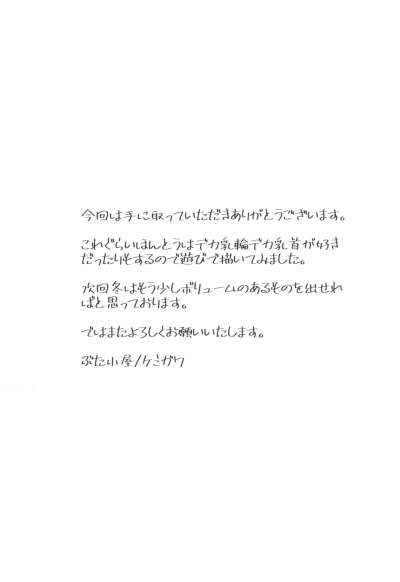 今回は手に取っていただきありがとうございます。
これぐらいほんとうはデカ乳輪デカ乳首が好き
だったりもするので遊びで描いてみました。
次回冬はもう少しボリュームのあるものを出せれ
ばと思っております。
ではまたよろしくお願いいたします。
ぶた小屋/ケミガワ